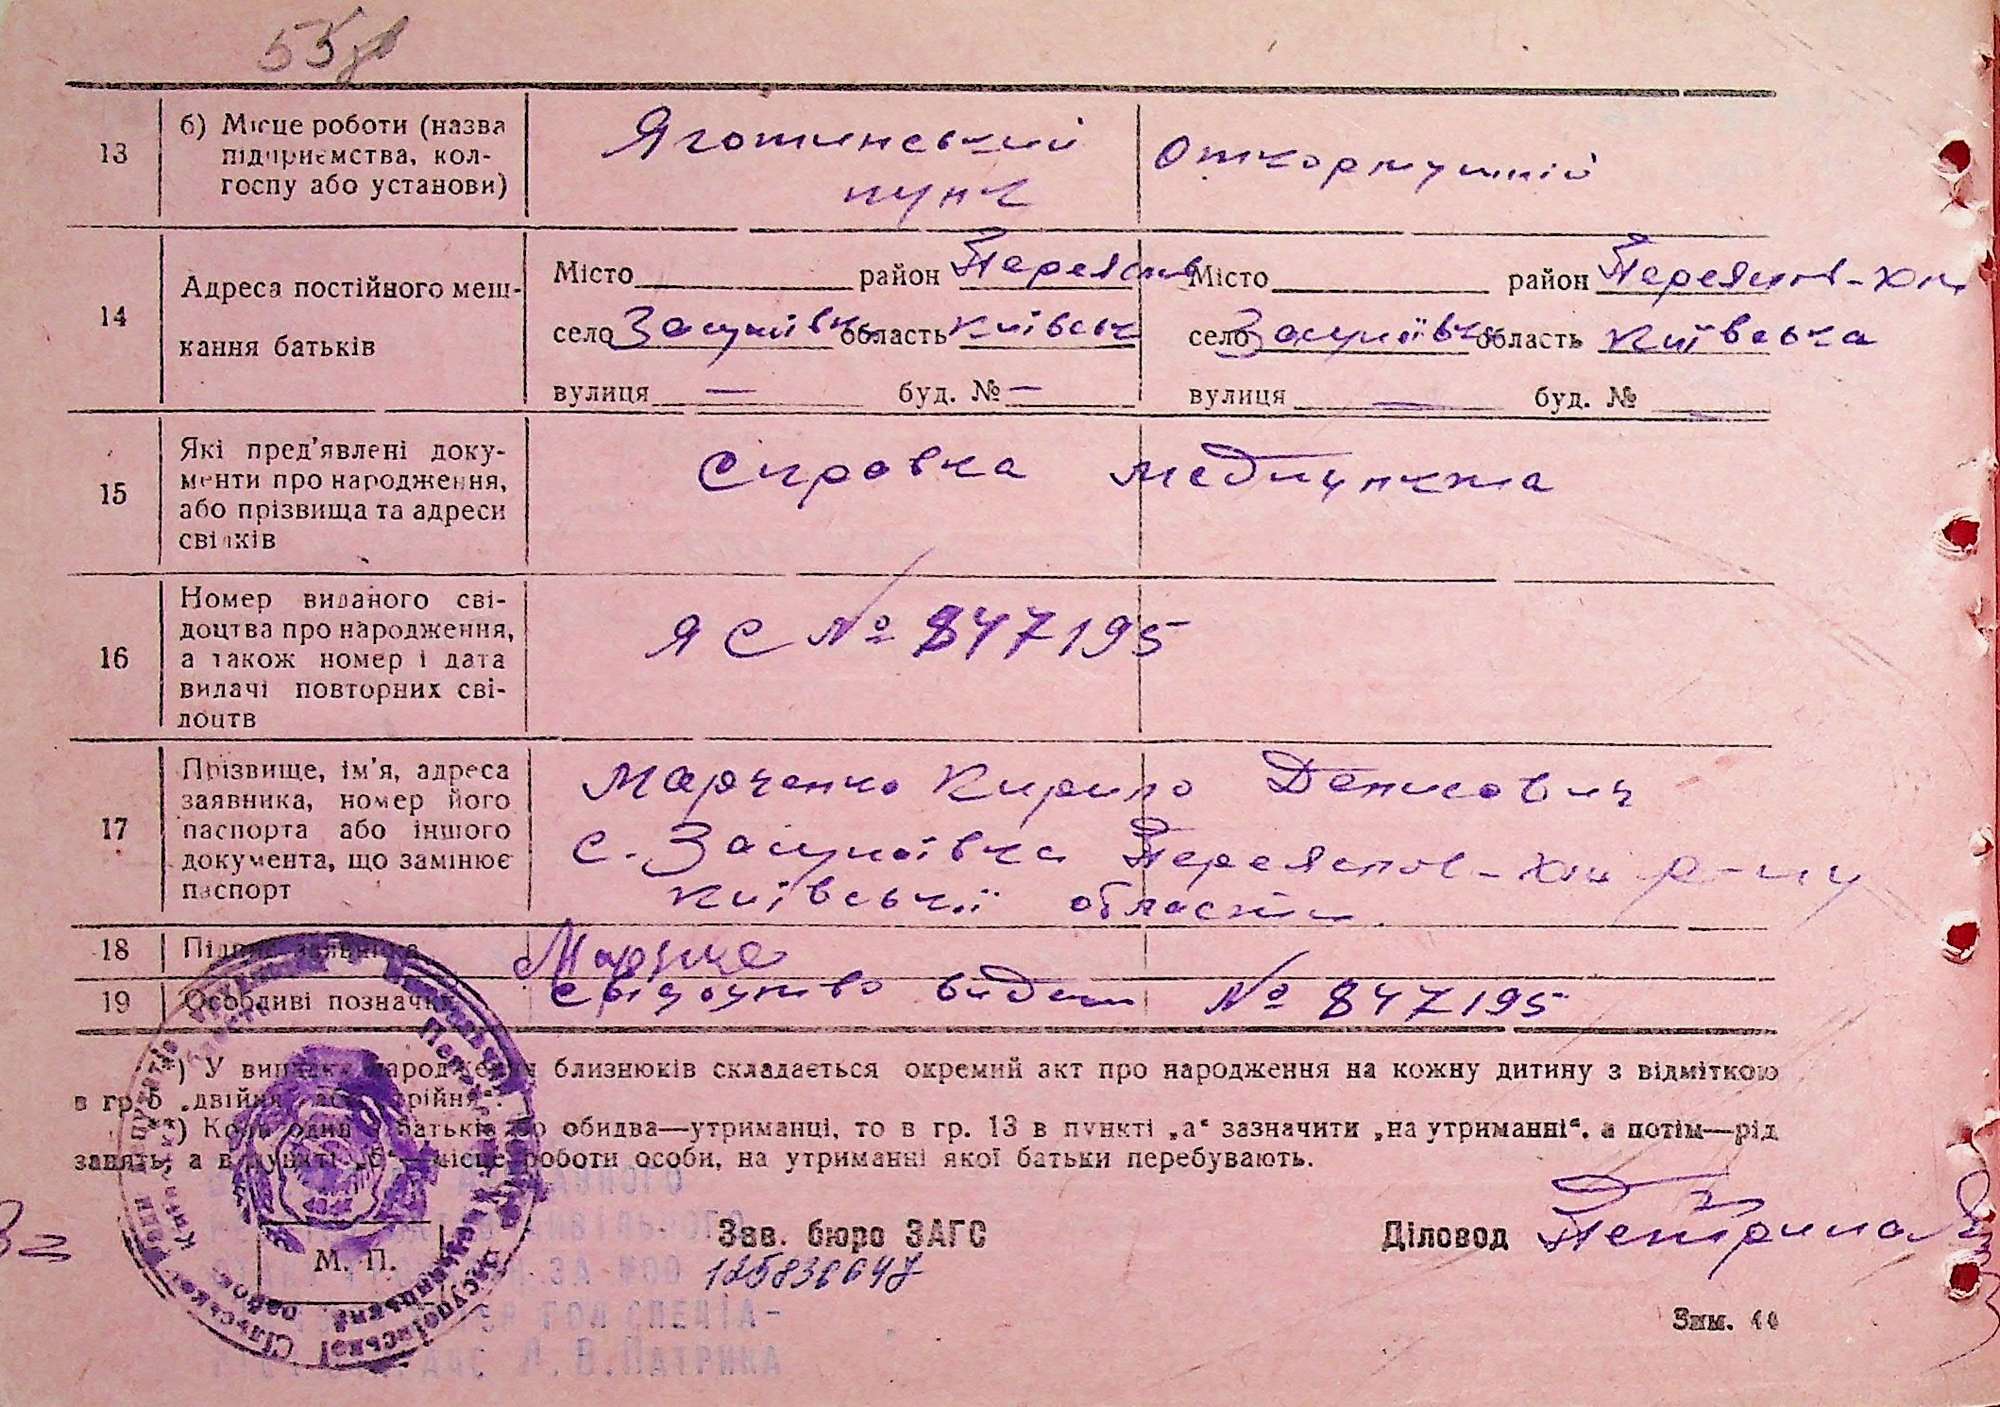 55
13 б) Місце роботи (назва підприємства, колгоспу або установи)
Яготинський Откормочний
пунк
14 Адреса постійного мешкання батьків
Місто район Переяслів Місто район Переяслов-Хм
село Засупоївка область Київська село Засупоївка область Київська
вулиця — буд. № — вулиця — буд. №
15 Які пред'явлені документи про народження, або прізвища та адреси свідків
Справка медпункта
16 Номер виданого свідоцтва про народження, а також номер і дата видачі повторних свідоцтв
ЯС № 847195
17 Прізвище, ім'я, адреса заявника, номер його паспорта або іншого документа, що замінює паспорт
Марченко Кирило Денисович
с. Засупоївка Переяслов-Хм р-ну
Київської області
18 Підпис заявника
19 Особливі позначки Свідоцтво видано № 847195
*) У випадку народження близнюків складається окремий акт про народження на кожну дитину з відміткою
в гр. 5 „двійня" або „трійня".
**) Коли один з батьків або обидва—утриманці, то в гр. 13 в пункті „а" зазначити „на утриманні", а потім—рід
занять, а в пункті „б"—місце роботи особи, на утриманні якої батьки перебувають.
М. П.
Зав. бюро ЗАГС
Діловод
Л. В. Патрика
Зам.